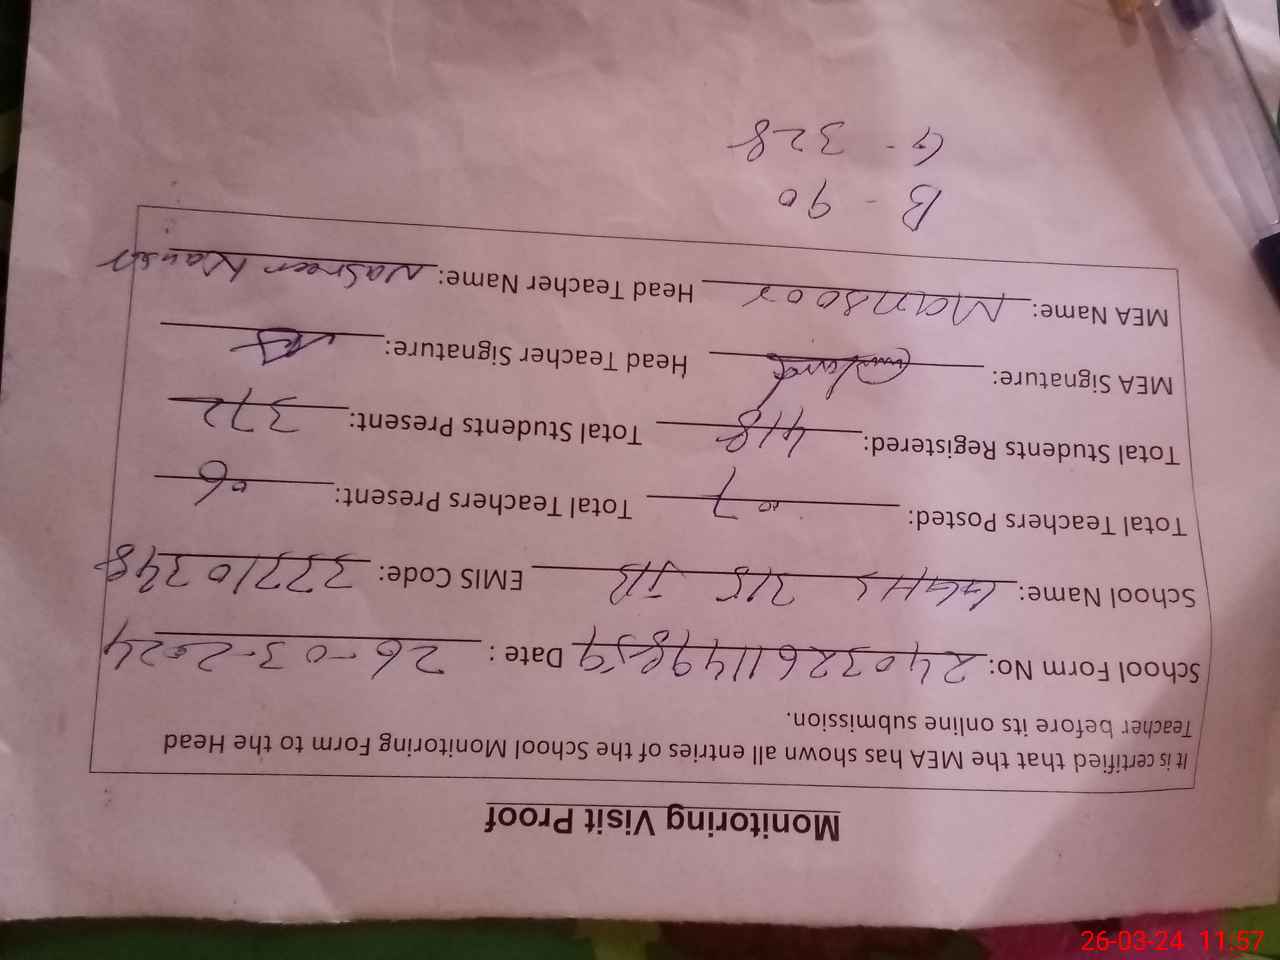 Monitoring Visit Proof
It is certified that the MEA has shown all entries of the School Monitoring Form to the Head
Teacher before its online submission.
School Form No: 24032611149859 Date : 26-03-2024
School Name: GGHS 315 JB EMIS Code: 33310348
Total Teachers Posted: 07 Total Teachers Present: 06
Total Students Registered: 418 Total Students Present: 372
MEA Signature: Head Teacher Signature:
MEA Name: Mansoor Head Teacher Name: Nasreen Kauser
B - 90
G - 328
26-03-24 11:57